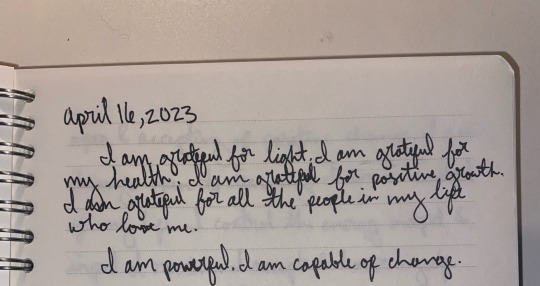 april 16, 2023
I am grateful for light. I am grateful for
my health. I am grateful for positive growth.
I am grateful for all the people in my life
who love me.
I am powerful. I am capable of change.